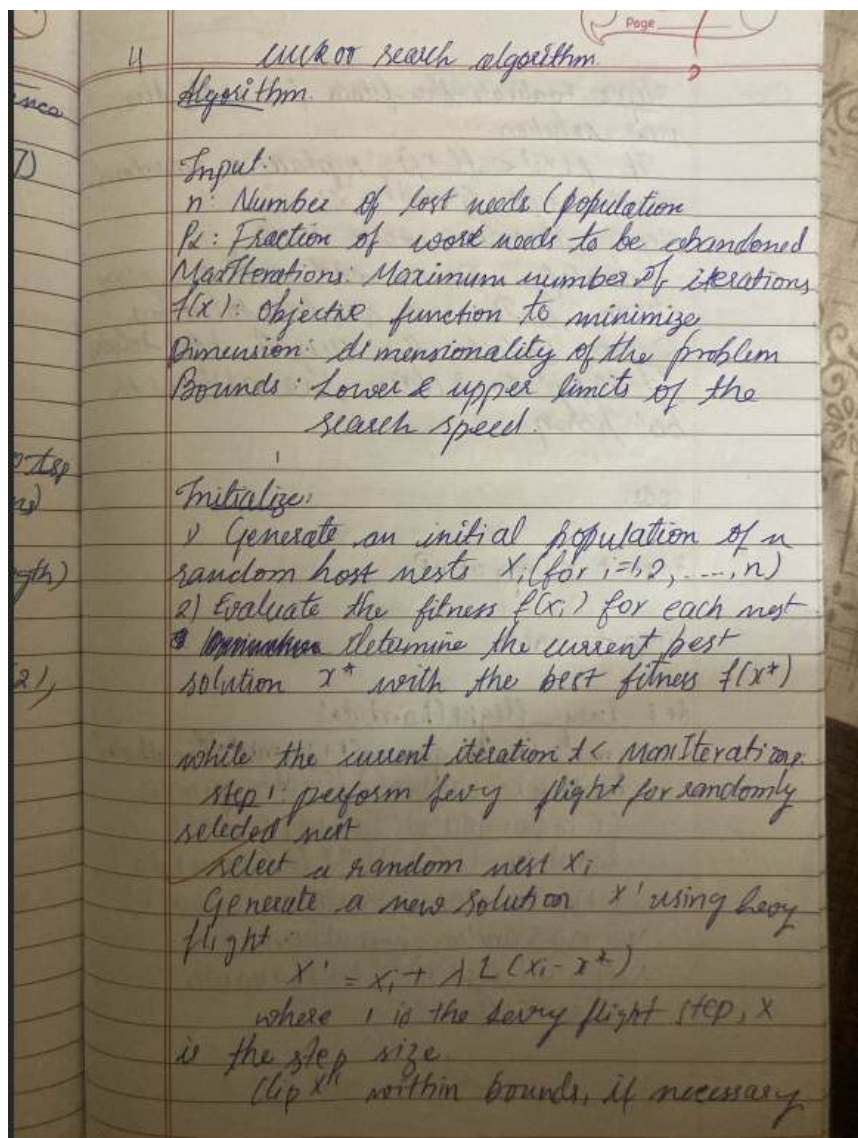 Page
4 cuckoo search algorithm.
Algorithm.
Input:
n: Number of lost needs (population
Pα: Fraction of worst needs to be abandoned
MaxIterations: Maximum number of iterations
f(x): objective function to minimize
Dimension: dimensionality of the problem
Bounds: Lower & upper limits of the
search speed.
Initialize:
1) Generate an initial population of n
random host nests Xi (for i=1,2, ...., n)
2) Evaluate the fitness f(xi) for each nest
determine the current best
solution x* with the best fitness f(x*)
while the current iteration t < MaxIterations
step 1: perform levy flight for randomly
seleded nest
select a random nest Xi
Generate a new solution x' using levy
flight:
X' = xi + λ L (xi - x*)
where l is the levy flight step, x
is the step size.
Clip x' within bounds, if necessary